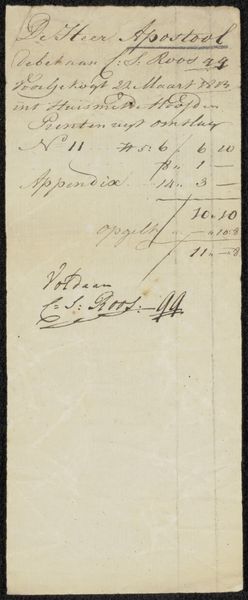 De Heer Apostool
debet aan C: S: Roos
Voor gekogt 22 Maart 1813
int Huis met Hoofden
Printen uyt omslag
N° 11 # 5: 6 6 10
8 „ 1 —
Appendix 14 „ 3 —
10 „ 10
opgelt „ — „ 10 „ 8
11 „ — „ 8
Voldaan
C: S: Roos